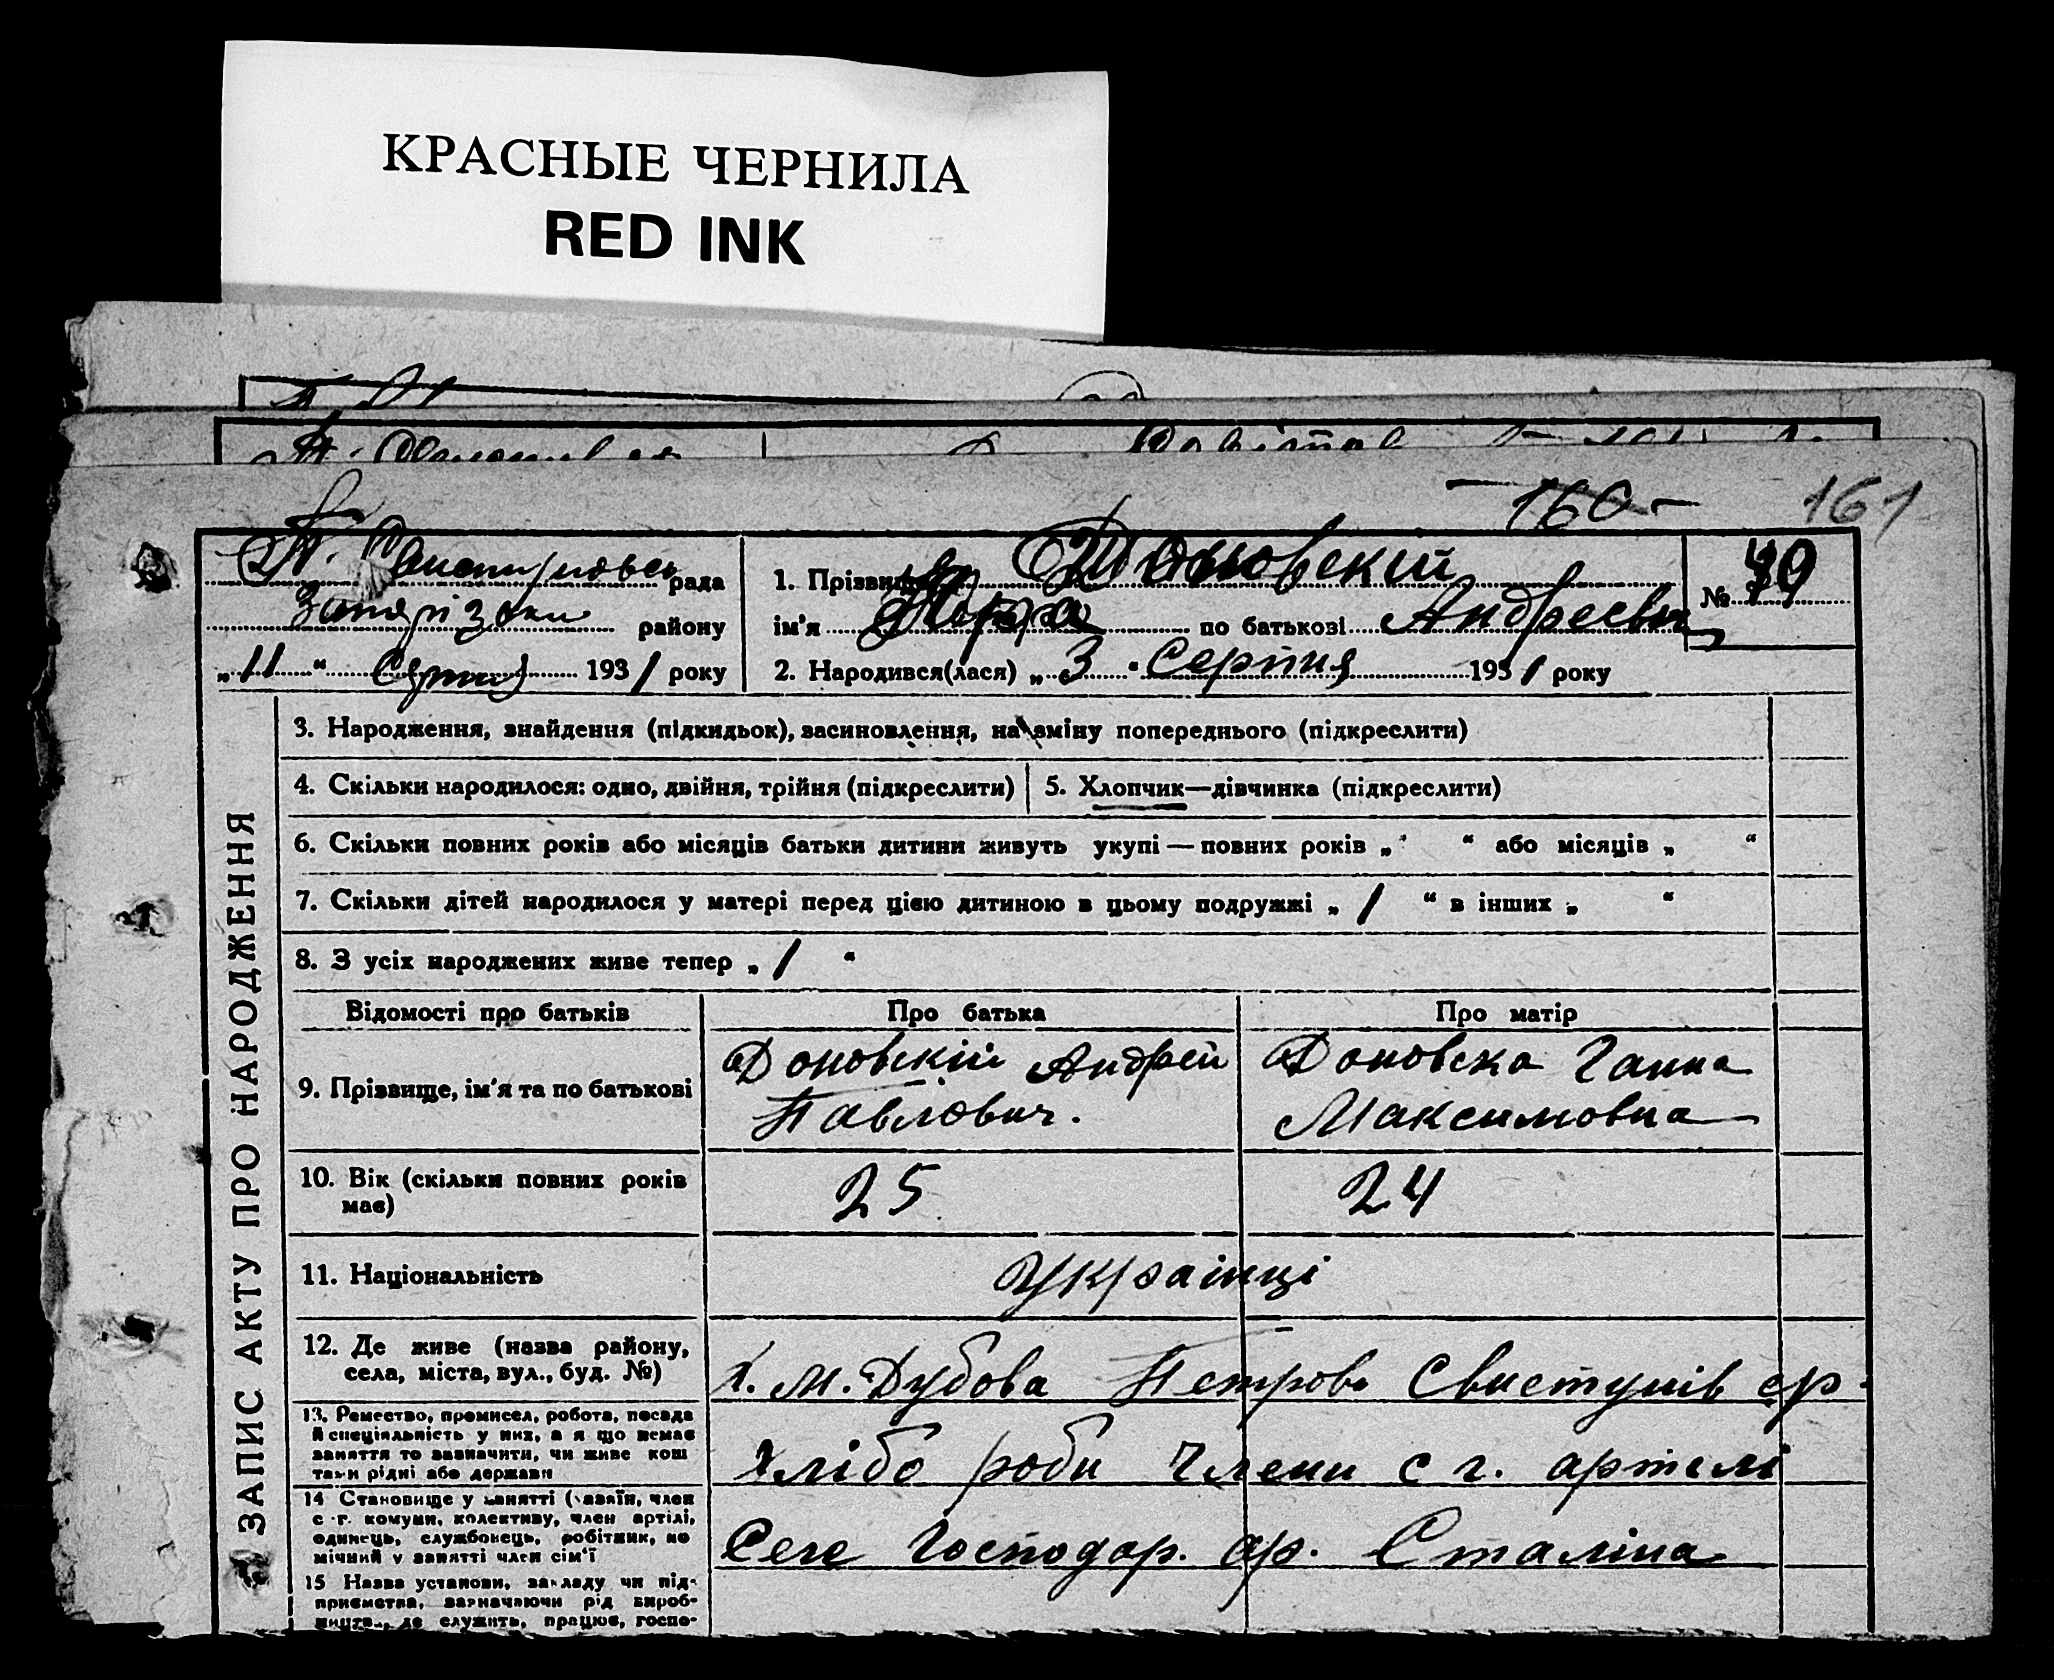 КРАСНЫЕ ЧЕРНИЛА
RED INK
-160-
161
рада
1. Прізвище Доновский
№ 49
району
ім'я по батькові Андреевич
„11“ Серпня 1931 року
2. Народився(лася) „3“ Серпня 1931 року
ЗАПИС АКТУ ПРО НАРОДЖЕННЯ
3. Народження, знайдення (підкидьок), засиновлення, на зміну попереднього (підкреслити)
4. Скільки народилося: одно, двійня, трійня (підкреслити)
5. Хлопчик—дівчинка (підкреслити)
6. Скільки повних років або місяців батьки дитини живуть укупі — повних років „ “ або місяців „ “
7. Скільки дітей народилося у матері перед цією дитиною в цьому подружжі „ 1 “ в інших „ “
8. З усіх народжених живе тепер „ 1 “
Відомості про батьків
Про батька
Про матір
9. Прізвище, ім'я та по батькові
Доновский Андрей
Павлович.
Доновска Ганна
Максимовна
10. Вік (скільки повних років
має)
25
24
11. Національність
Українці
12. Де живе (назва району,
села, міста, вул., буд. №)
х. М. Дубова Петрово Свистунів ср.
13. Ремество, промисел, робота, посада
й спеціяльність у них, а я що немає
заняття то зазначити, чи живе кош
тами рідні або держави
Хлібороби Члени с г. артелі
14 Становище у занятті (хазяїн, член
с.-г. комуни, колективу, член артілі,
одинець, службовець, робітник, по
мічний у занятті член сім'ї
Сель Господар. ар. Сталіна
15 Назва установи, закладу чи під-
приємства, зазначаючи рід вироб-
ництва, де служить, працює, госпо-